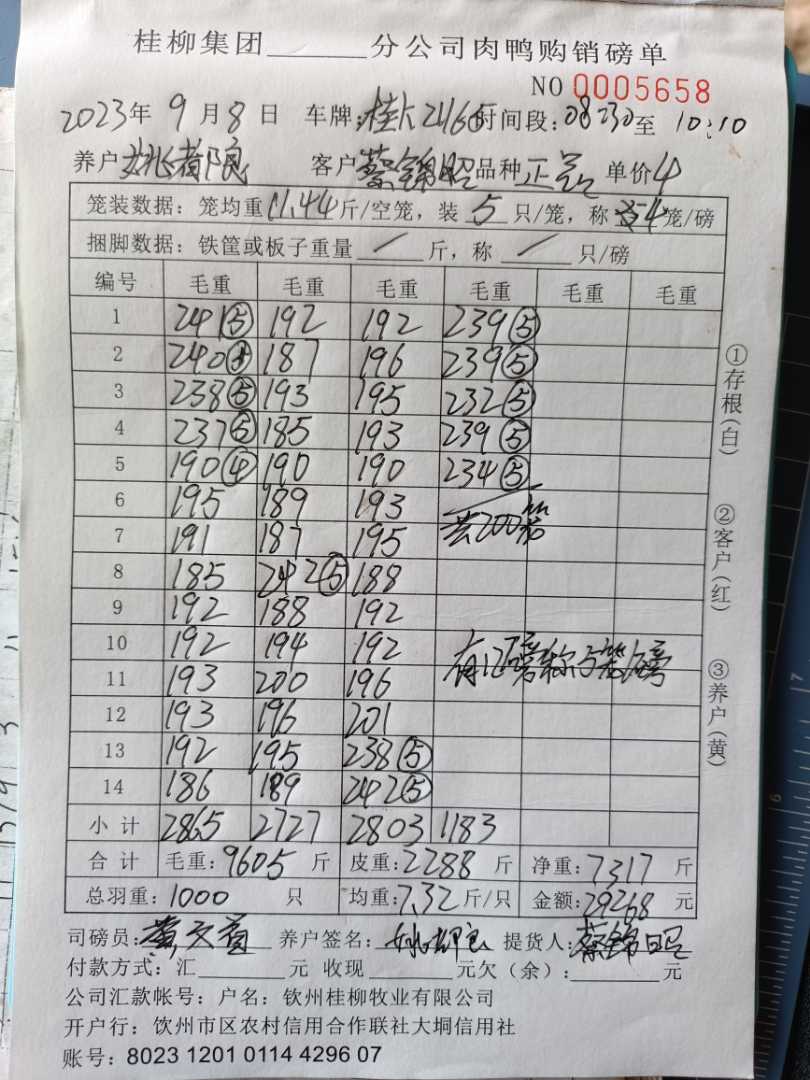 桂柳集团______分公司肉鸭购销磅单
NO 0005658
2023年 9月 8日 车牌: 时间段:08:30至 10:10
养户 客户 蔡锦昭 品种 单价4
笼装数据:笼均重11.44斤/空笼,装 5 只/笼,称 4笼/磅
捆脚数据:铁筐或板子重量 / 斤,称 / 只/磅
编号 毛重 毛重 毛重 毛重 毛重 毛重
1 241⑤ 192 192 239⑤
2 240⑤ 187 196 239⑤
3 238⑤ 193 195 232⑤
4 237⑤ 185 193 239⑤
5 190④ 190 190 234⑤
6 195 189 193
7 191 187 195 共200笼
8 185 242⑤ 188
9 192 188 192
10 192 194 192 有12磅称5笼/磅
11 193 200 196
12 193 196 201
13 192 195 238⑤
14 186 189 242⑤
小计 2865 2727 2803 1183
合计 毛重:9605斤 皮重:2288斤 净重:7317斤
总羽重:1000 只 均重:7.32斤/只 金额:29268元
司磅员: 养户签名: 提货人:蔡锦昭
付款方式:汇______元 收现______元欠(余):______元
公司汇款帐号:户名:钦州桂柳牧业有限公司
开户行:钦州市区农村信用合作联社大垌信用社
账号:8023 1201 0114 4296 07
①存根(白)
②客户(红)
③养户(黄)